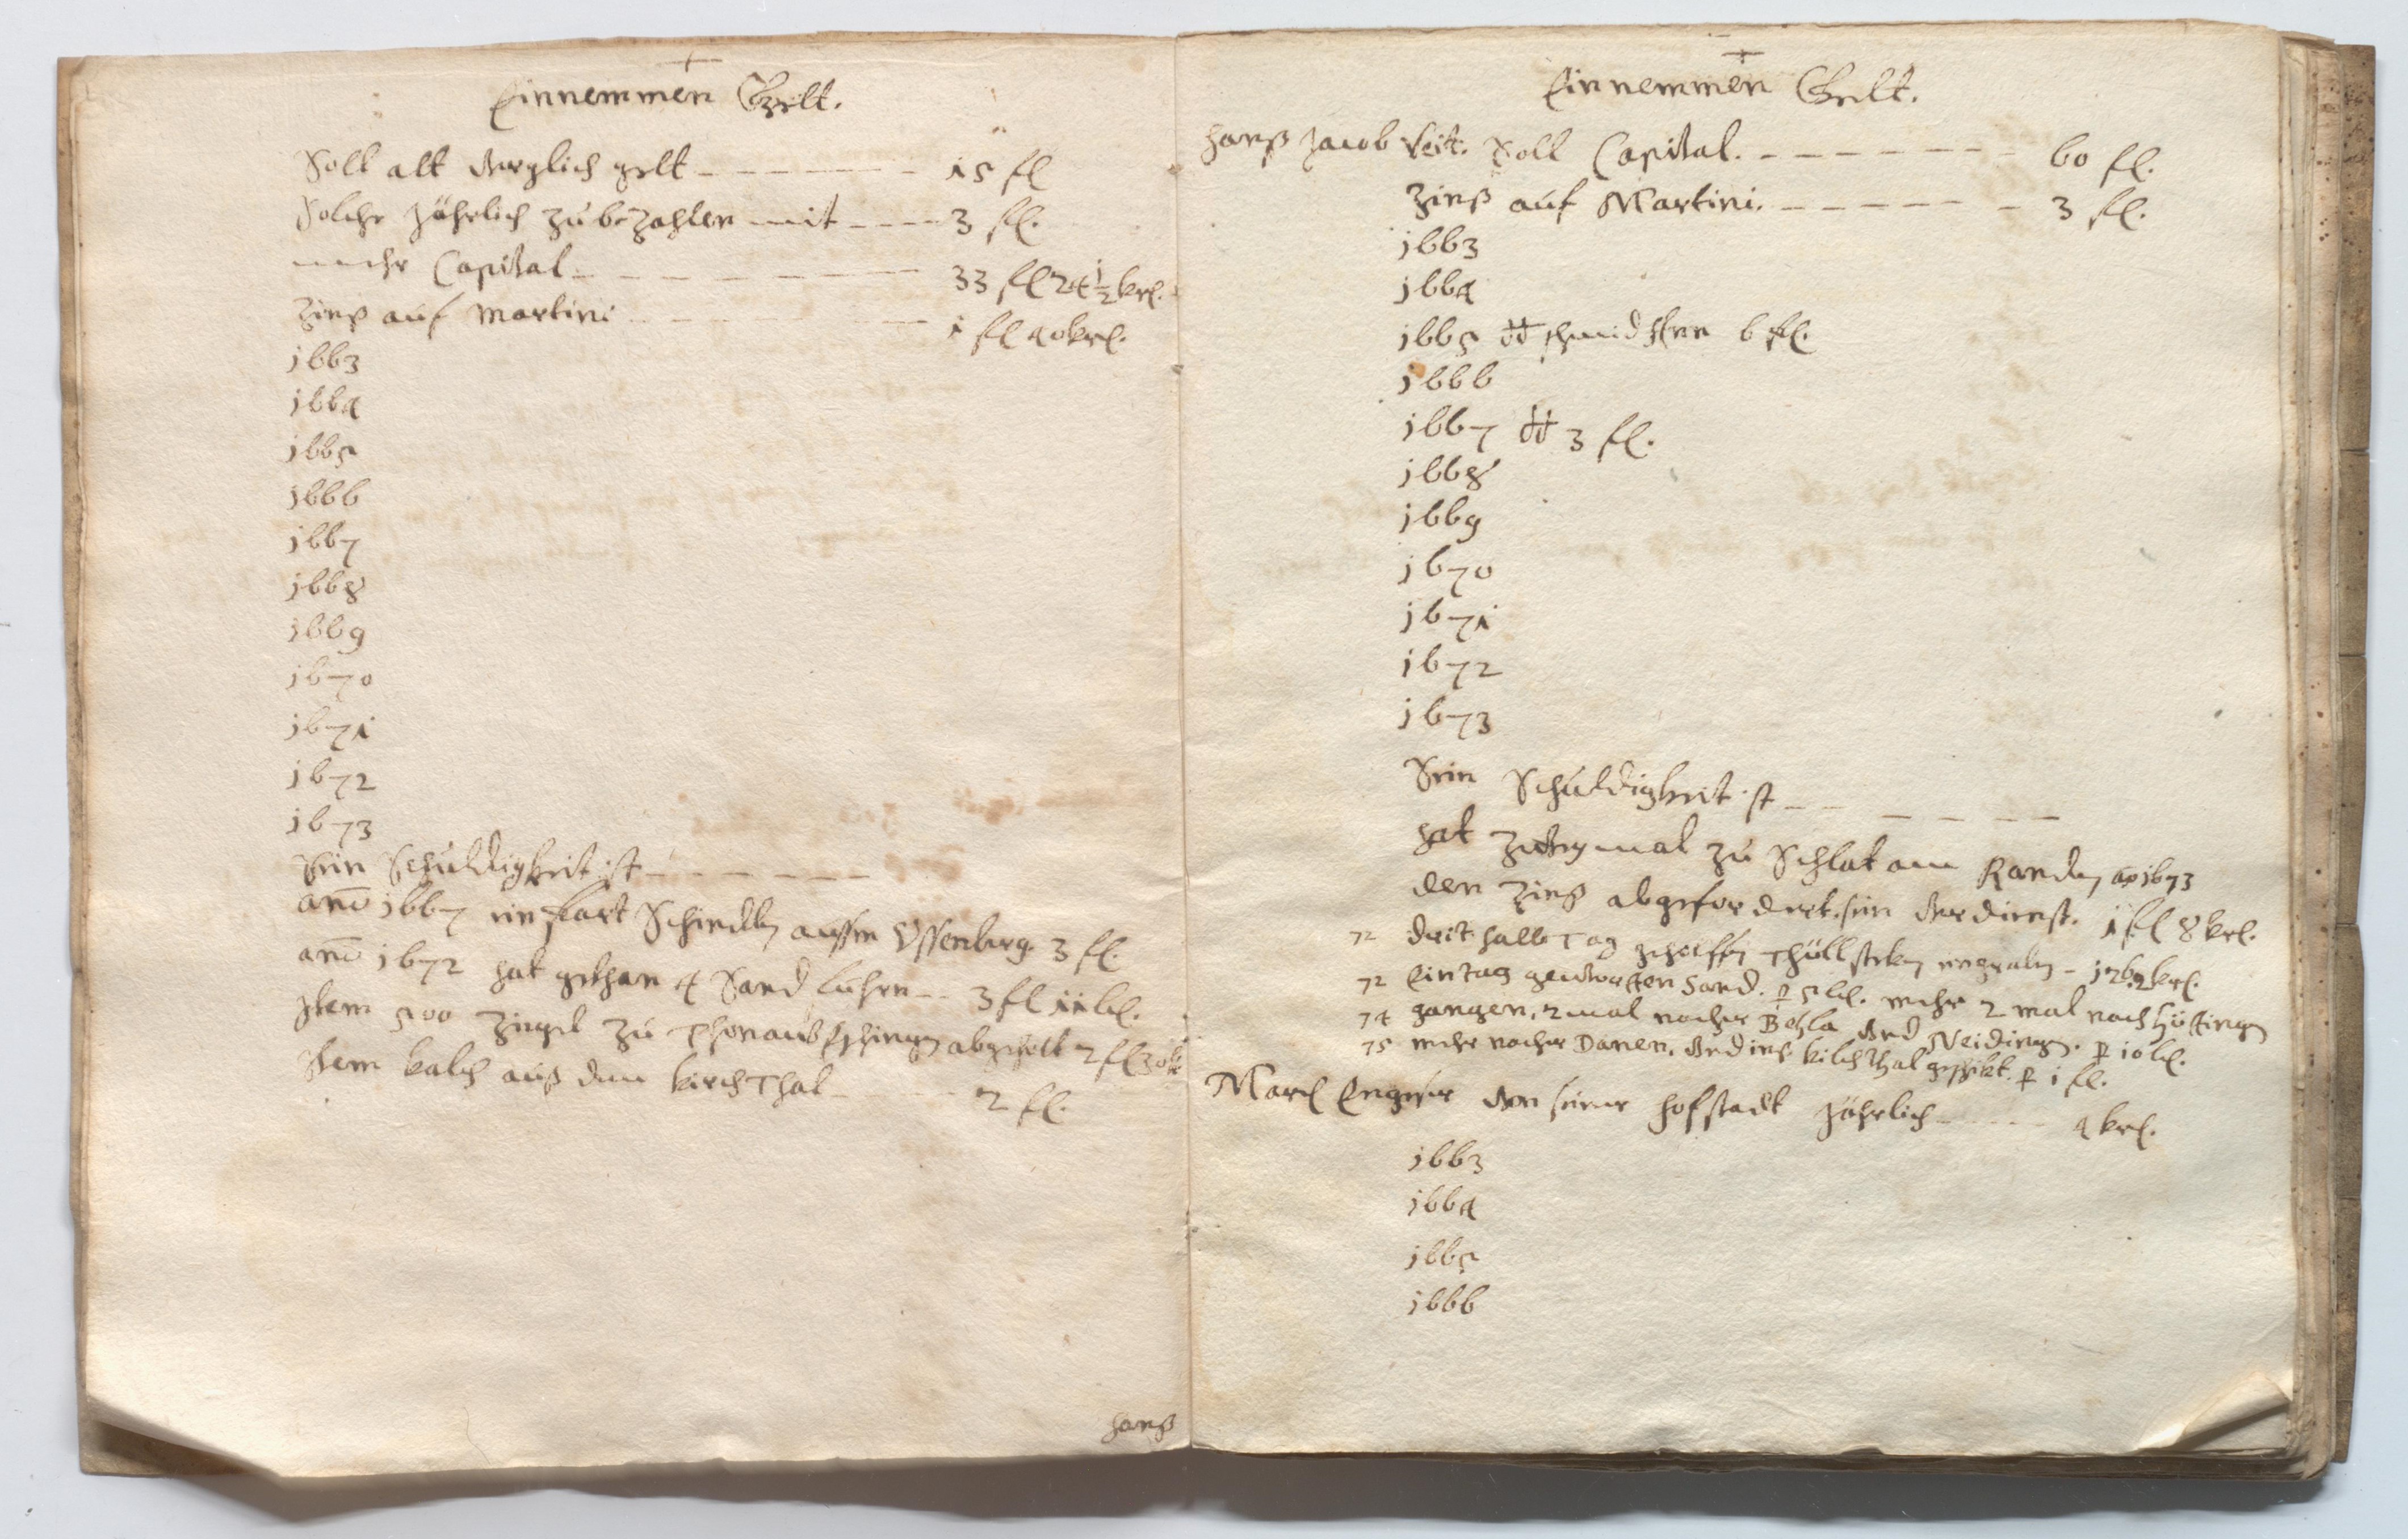 Einnemmen Gelt.
Soll alt verglich gelt 15 fl
Solche Jährlich zubezahlen mit 3 fl.
mehr Capital 33 fl 24 1/2 krl.
Zinß auf Martini 1 fl 40 krl.
1663
1664
1665
1666
1667
1668
1669
1670
1671
1672
1673
Sein Schuldigkeit ist
ano 1667 ein fart Schindlen aussm Yssenberg 3 fl.
ano 1672 hat gethan 4 Sand fuhren 3 fl
Item 500 Ziegel zu Thonaueschingen abgeholt 2 fl 30 kr
Item kalch auß dem kirchThal 2 fl.
Hanß
Einnemmen Gelt.
Hanß Jacob Veit. Soll Capital. 60 fl.
Zinß auf Martini. 3 fl.
1663
1664
1665 dt 6 fl.
1666
1667 dt 3 fl.
1668
1669
1670
1671
1672
1673
Sein Schuldigkeit ist
hat zweymal zu Schlat am Randen ao 1673
den Zinß abgefordert. sein verdienst. 1 fl 8 krl.
72 drithalb Tag
72 Ein tag geworffen Sand. mehr 2 mal nach Hüfingen
74 gangen, 2 mal nacher Behla vnd Neidingen.
75 mehr nacher Danen, vnd ins kilchthal geschikt. p 1 fl.
von seiner hofstadt Jährlich 4 krl.
1663
1664
1665
1666